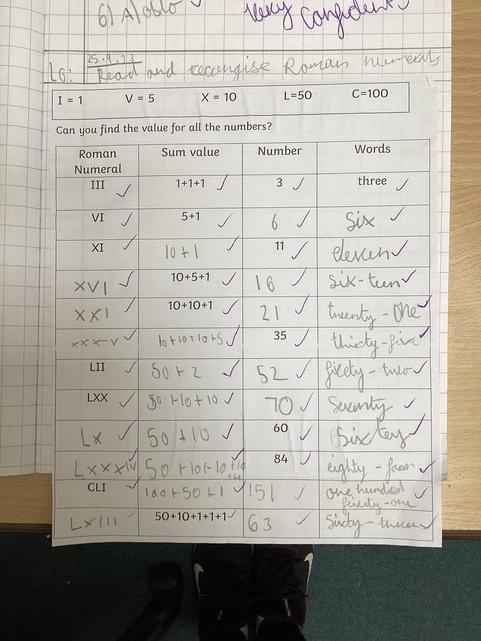 6) Alablo
Very Confident
25.9.23
Lo: Read and recongise Roman numerals
I = 1 V = 5 X = 10 L=50 C=100
Can you find the value for all the numbers?
Roman Numeral Sum value Number Words
III 1+1+1 3 three
VI 5+1 6 Six
XI 10+1 11 eleven
XVI 10+5+1 16 six-teen
XXI 10+10+1 21 twenty-one
XXXV 10+10+10+5 35 thirty-five
LII 50+2 52 fifety-two
LXX 50+10+10 70 Seventy
LX 50+10 60 Sixtey
LXXXIV 50+10+10+10+4 84 eighty-four
CLI 100+50+1 151 one hundred
fifety-one
LXIII 50+10+1+1+1 63 Sixty-three